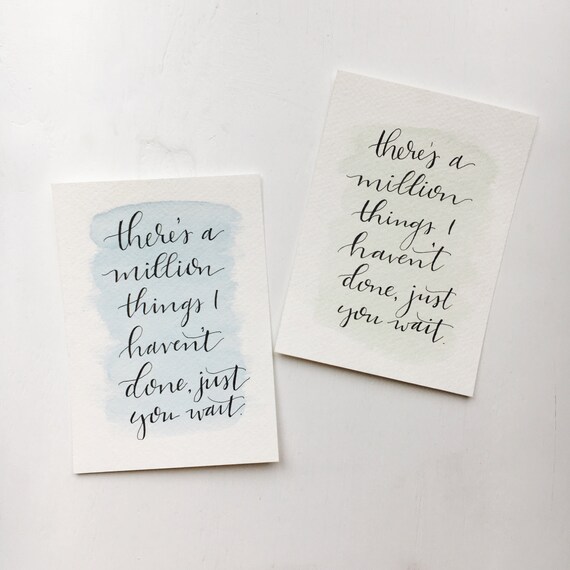 there's a
million
things I
haven't
done, just
you wait.
there's a
million
things I
haven't
done, just
you wait.